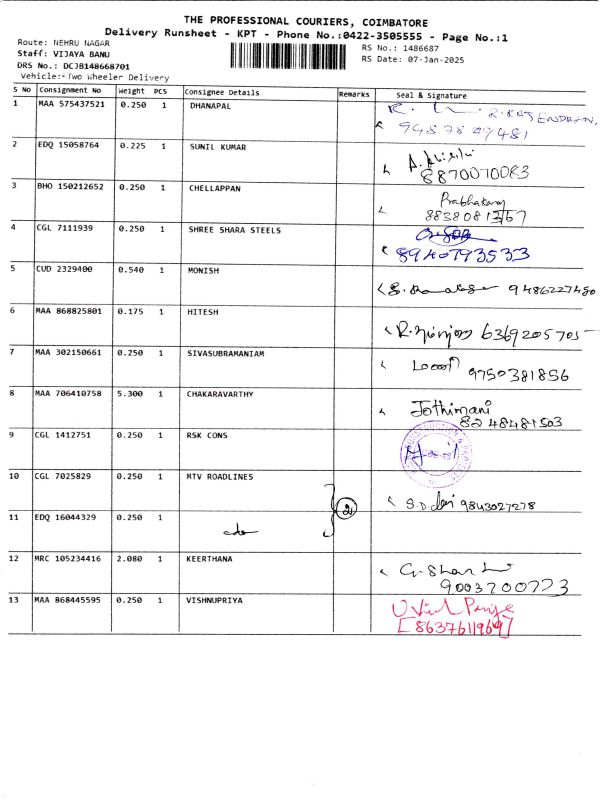 THE PROFESSIONAL COURIERS, COIMBATORE
Delivery Runsheet - KPT - Phone No.:0422-3505555 - Page No.:1
Route: NEHRU NAGAR
Staff: VIJAYA BANU
DRS No.: DCJB148668701
Vehicle:-Two Wheeler Delivery
RS No.: 1486687
RS Date: 07-Jan-2025
S No Consignment No Weight PCS Consignee Details Remarks Seal & Signature
1 MAA 575437521 0.250 1 DHANAPAL
2 EDQ 15058764 0.225 1 SUNIL KUMAR
8870070083
3 BHO 150212652 0.250 1 CHELLAPPAN Prabhakaran
4 CGL 7111939 0.250 1 SHREE SHARA STEELS
8940793533
5 CUD 2329400 0.540 1 MONISH 9486227480
6 MAA 868825801 0.175 1 HITESH 6369205705
7 MAA 302150661 0.250 1 SIVASUBRAMANIAM
9750381856
8 MAA 706410758 5.300 1 CHAKARAVARTHY Jothimani
8248481503
9 CGL 1412751 0.250 1 RSK CONS
10 CGL 7025829 0.250 1 MTV ROADLINES 2 S.D. 9843027278
11 EDQ 16044329 0.250 1 do
12 MRC 105234416 2.080 1 KEERTHANA
9003700773
13 MAA 868445595 0.250 1 VISHNUPRIYA
[8637611969]